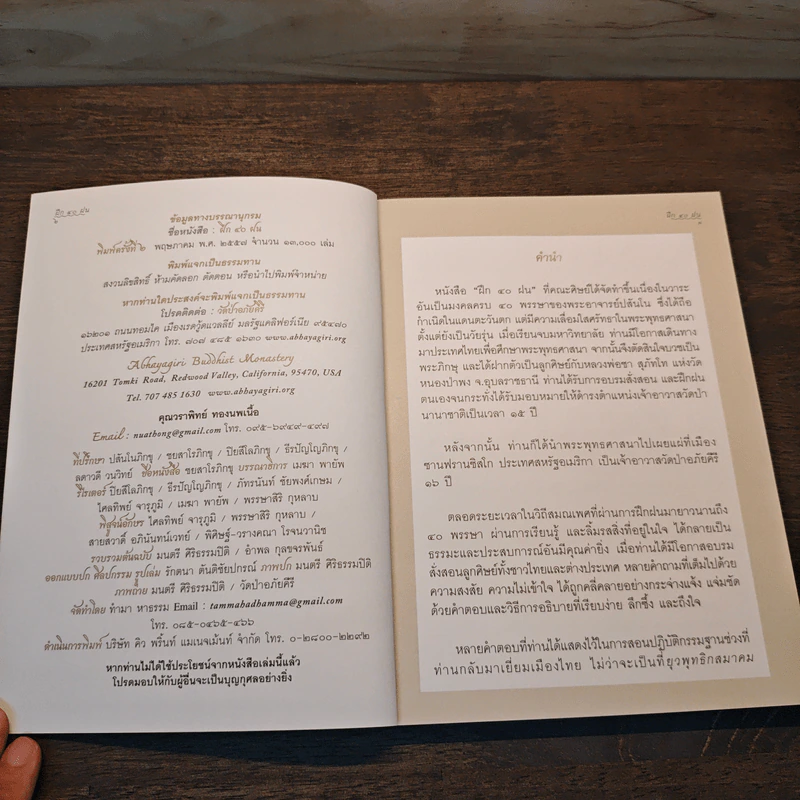 ฝึก ๔๐ ฝน
ข้อมูลทางบรรณานุกรม
ชื่อหนังสือ : ฝึก ๔๐ ฝน
พิมพ์ครั้งที่ ๒ พฤษภาคม พ.ศ. ๒๕๕๗ จำนวน ๑๓,๐๐๐ เล่ม
พิมพ์แจกเป็นธรรมทาน
สงวนลิขสิทธิ์ ห้ามคัดลอก ตัดตอน หรือนำไปพิมพ์จำหน่าย
หากท่านใดประสงค์จะพิมพ์แจกเป็นธรรมทาน
โปรดติดต่อ : วัดป่าอภัยคีรี
๑๖๒๐๑ ถนนทอมไค เมืองเรดวู้ดแวลลีย์ มลรัฐแคลิฟอร์เนีย ๙๕๔๗๐
ประเทศสหรัฐอเมริกา โทร. ๗๐๗ ๔๘๕ ๑๖๓๐ www.abhayagiri.org
Abhayagiri Buddhist Monastery
16201 Tomki Road, Redwood Valley, California, 95470, USA
Tel. 707 485 1630 www.abhayagiri.org
คุณวราพิทย์ ทองนพเนื้อ
Email : nuathong@gmail.com โทร. ๐๙๕-๖๙๔๙-๔๙๗
ที่ปรึกษา ปสันโนภิกขุ / ชยสาโรภิกขุ / ปิยสีโลภิกขุ / ธีรปัญโญภิกขุ /
ลดาวดี วนวิทย์ ชื่อหนังสือ ชยสาโรภิกขุ บรรณาธิการ เมฆา พายัพ
รีไรเตอร์ ปิยสีโลภิกขุ / ธีรปัญโญภิกขุ / ภัทรนันท์ ชัยพงศ์เกษม /
ไคลทิพย์ จารุภูมิ / เมฆา พายัพ / พรรษาสิริ กุหลาบ
พิสูจน์อักษร ไคลทิพย์ จารุภูมิ / พรรษาสิริ กุหลาบ /
สายสวาดิ์ อภินันทน์เวทย์ / พิศิษฐ์-วรางคณา โรจนวานิช
รวบรวมต้นฉบับ มนตรี ศิริธรรมปิติ / อำพล กุลชจรพันธ์
ออกแบบปก ศิลปกรรม รูปเล่ม รักตนา ตันติชัยปกรณ์ ภาพปก มนตรี ศิริธรรมปิติ
ภาพถ่าย มนตรี ศิริธรรมปิติ / วัดป่าอภัยคีรี
จัดทำโดย ทำมา หาธรรม Email : tammahadhamma@gmail.com
โทร. ๐๘๕-๐๔๖๕-๔๖๖
ดำเนินการพิมพ์ บริษัท คิว พริ้นท์ แมเนจเม้นท์ จำกัด โทร. ๐-๒๘๐๐-๒๒๙๒
หากท่านไม่ได้ใช้ประโยชน์จากหนังสือเล่มนี้แล้ว
โปรดมอบให้กับผู้อื่นจะเป็นบุญกุศลอย่างยิ่ง
ฝึก ๔๐ ฝน
คำนำ
หนังสือ “ฝึก ๔๐ ฝน” ที่คณะศิษย์ได้จัดทำขึ้นเนื่องในวาระ
อันเป็นมงคลครบ ๔๐ พรรษาของพระอาจารย์ปสันโน ซึ่งได้ถือ
กำเนิดในแดนตะวันตก แต่มีความเลื่อมใสศรัทธาในพระพุทธศาสนา
ตั้งแต่ยังเป็นวัยรุ่น เมื่อเรียนจบมหาวิทยาลัย ท่านมีโอกาสเดินทาง
มาประเทศไทยเพื่อศึกษาพระพุทธศาสนา จากนั้นจึงตัดสินใจบวชเป็น
พระภิกษุ และได้ฝากตัวเป็นลูกศิษย์กับหลวงพ่อชา สุภัทโท แห่งวัด
หนองป่าพง จ.อุบลราชธานี ท่านได้รับการอบรมสั่งสอน และฝึกฝน
ตนเองจนกระทั่งได้รับมอบหมายให้ดำรงตำแหน่งเจ้าอาวาสวัดป่า
นานาชาติเป็นเวลา ๑๕ ปี
หลังจากนั้น ท่านก็ได้นำพระพุทธศาสนาไปเผยแผ่ที่เมือง
ซานฟรานซิสโก ประเทศสหรัฐอเมริกา เป็นเจ้าอาวาสวัดป่าอภัยคีรี
๑๖ ปี
ตลอดระยะเวลาในวิถีสมณเพศที่ผ่านการฝึกฝนมายาวนานถึง
๔๐ พรรษา ผ่านการเรียนรู้ และลิ้มรสสิ่งที่อยู่ในใจ ได้กลายเป็น
ธรรมะและประสบการณ์อันมีคุณค่ายิ่ง เมื่อท่านได้มีโอกาสอบรม
สั่งสอนลูกศิษย์ทั้งชาวไทยและต่างประเทศ หลายคำถามที่เต็มไปด้วย
ความสงสัย ความไม่เข้าใจ ได้ถูกคลี่คลายอย่างกระจ่างแจ้ง แจ่มชัด
ด้วยคำตอบและวิธีการอธิบายที่เรียบง่าย ลึกซึ้ง และถึงใจ
หลายคำตอบที่ท่านได้แสดงไว้ในการสอนปฏิบัติกรรมฐานช่วงที่
ท่านกลับมาเยี่ยมเมืองไทย ไม่ว่าจะเป็นที่ยุวพุทธิกสมาคม